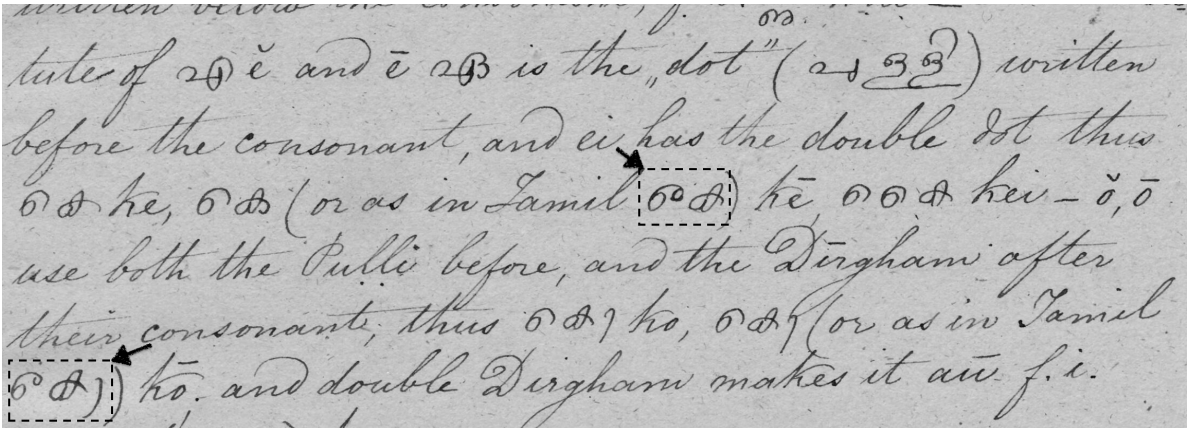 written below the
tute of എ ĕ and ē ഏ is the „dot” (പുള്ളി) written
before the consonant, and ei has the double dot thus
കെ ke, കെ (or as in Tamil കേ) kē, കൈ kei – ŏ, ō
use both the Pulli before, and the Dīrgham after
their consonant, thus കൊ ko, കൊ (or as in Tamil
കോ) kō. and double Dirgham makes it aū f. i.